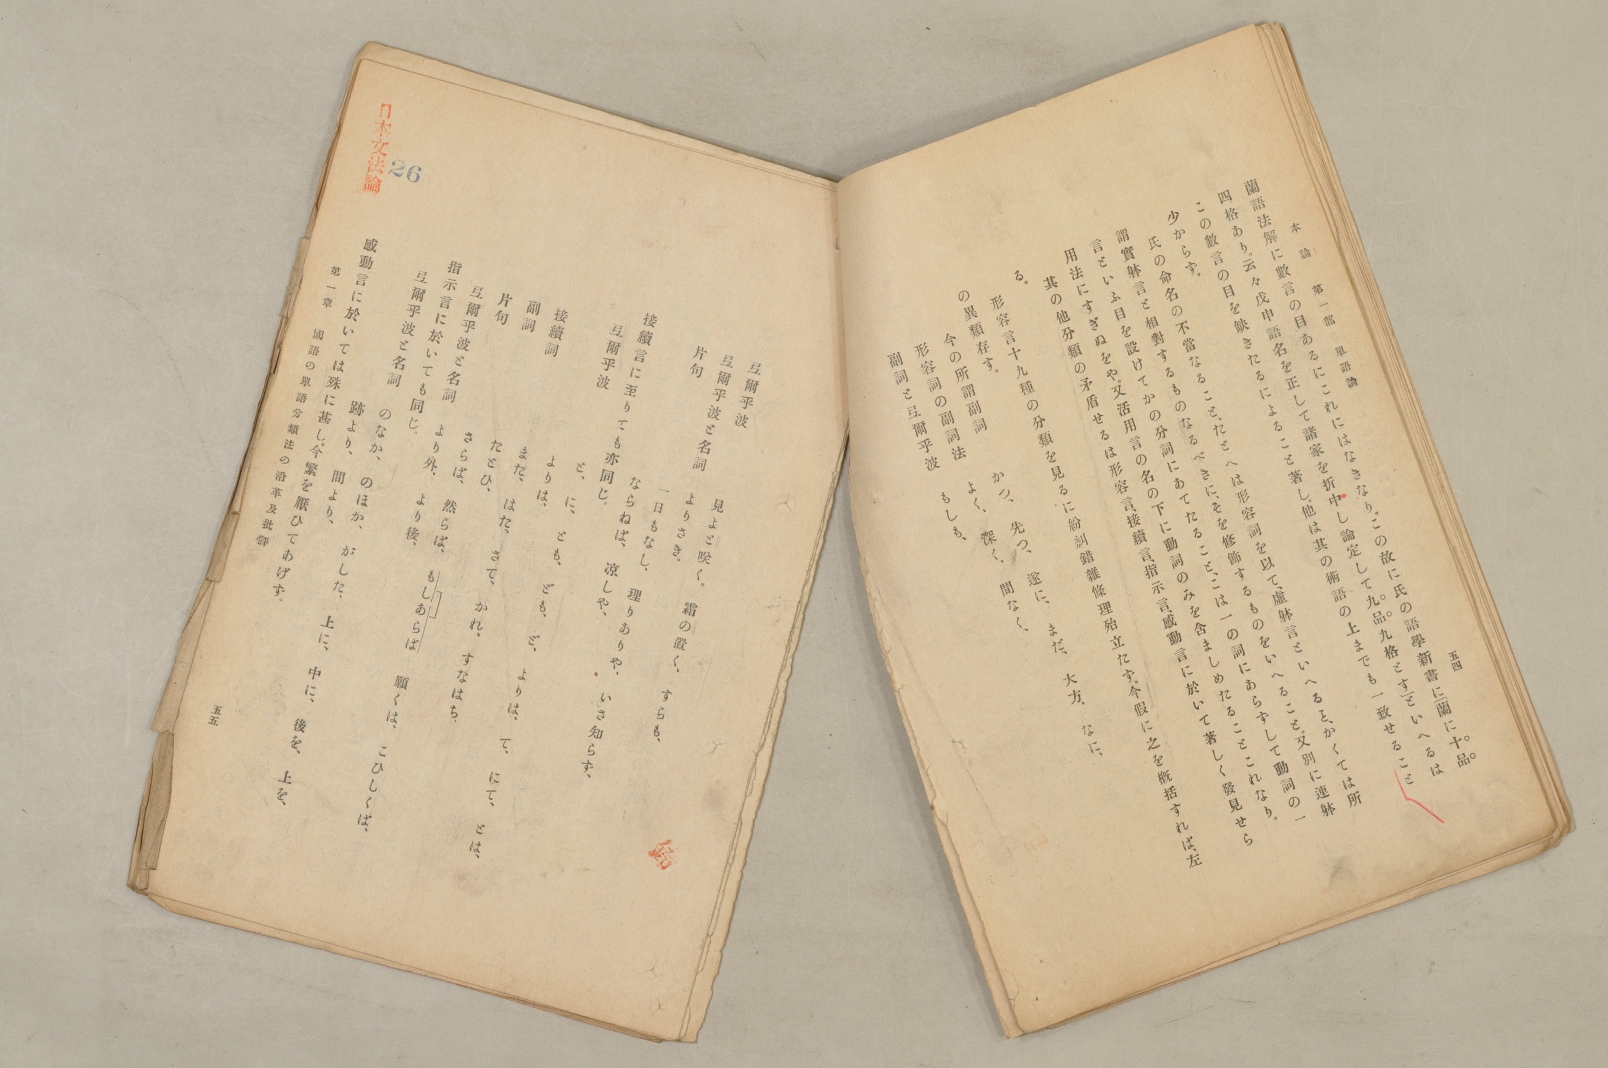 本論　第一部　單語論
五四
蘭語法解に數言の目あるにこれにはなきなり。この故に氏の語學新書に「蘭に十品。
四格あり。云々戊申語名を正して諸家を折中し論定して九品。九格とす」といへるは
この數言の目を缺きたるによること著し。他は其の術語の上までも一致せること
少からず。
氏の命名の不當なること、たとへは形容詞を以て、虛躰言といへると、かくては所
謂實躰言と相對するものなるべきに、そを修飾するものをいへること、又別に連躰
言といふ目を設けてかの分詞にあてたること、こは一の詞にあらずして動詞の一
用法にすぎぬをや。又活用言の名の下に動詞のみを含ましめたることこれなり。
其の他分類の矛盾せるは形容言、接續言、指示言、感動言に於いて著しく發見せら
る。
形容言十九種の分類を見るに紛糾錯雜條理殆立たず。今假に之を概括すれば、左
の異類存す。
今の所謂副詞　かつ、先つ、遂に、まだ、大方、なに、
形容詞の副詞法　よく、深く、間なく、
副詞と弖爾乎波　もしも、
弖爾乎波　見よと咲く。霜の置く、すらも、
弖爾乎波と名詞　よりさき。
片句　一日もなし、理りありや、いさ知らず、
接續言に至りても亦同じ。
弖爾乎波　ならねば、凉しや、
と、に、とも、ども、ど、よりは、て、にて、とは、
よりは、
接續詞　また、はた、さて、かれ、すなはち、
副詞　たとひ、
片句　さらば、然らば、もしあらば　願くは、こひしくば、
弖爾乎波と名詞　より外、より後、
指示言に於いても同じ。
弖爾乎波と名詞　のなか、のほか、がした、上に、中に、後を、上を、
跡より、間より、
感動言に於いては殊に甚し。今繁を厭ひてあげず。
第一章　國語の單語分類法の沿革及批評
五五
日本文法論
26